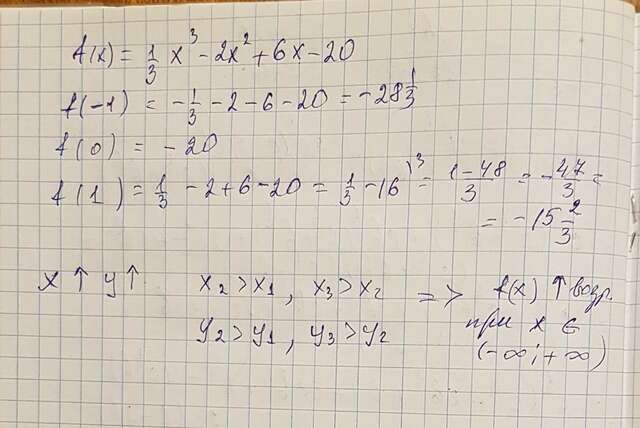 f(x) = 1/3 x³ - 2x² + 6x - 20
f(-1) = -1/3 - 2 - 6 - 20 = -28 1/3
f(0) = -20
f(1) = 1/3 - 2 + 6 - 20 = 1/3 - 16 ⁾³ = (1 - 48)/3 = -47/3 =
= -15 2/3
x ↑ y ↑ x₂ > x₁, x₃ > x₂ => f(x) ↑ возр.
y₂ > y₁, y₃ > y₂ при x ∈
(-∞; +∞)